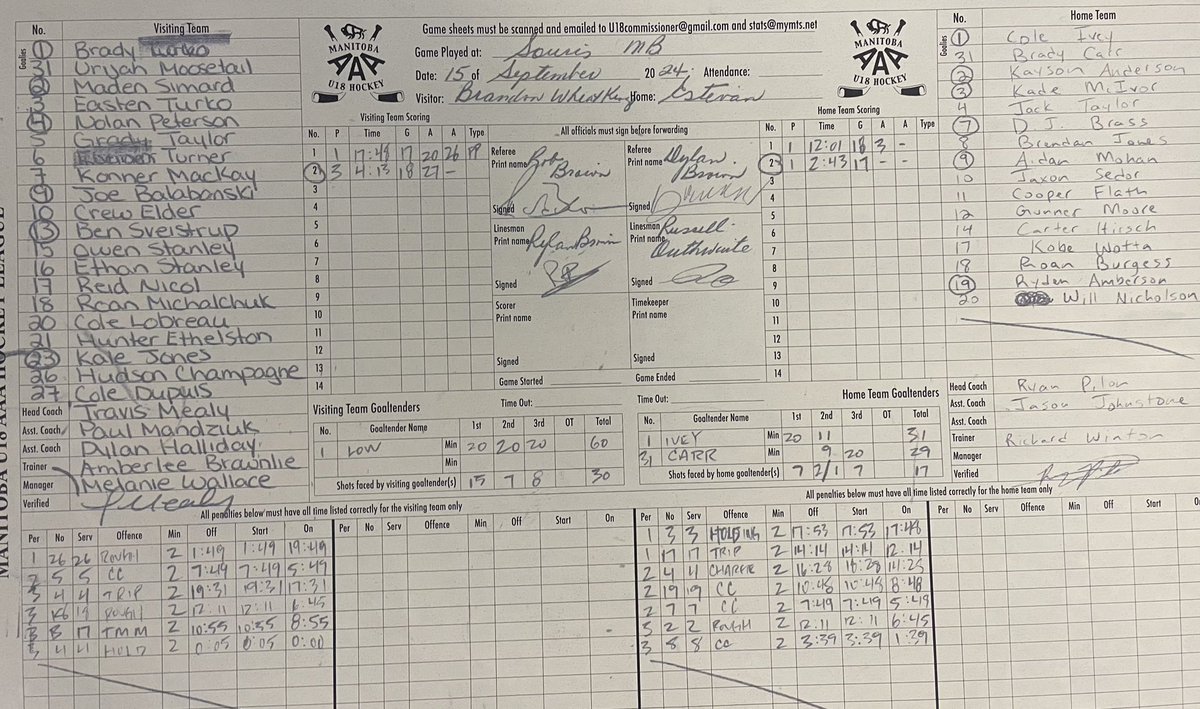 No. Visiting Team
Goalies
1 Brady
2 Uryah Moosetail
2 Maden Simard
3 Easten Turko
4 Nolan Peterson
5 Grady Taylor
6 Turner
7 Konner MacKay
9 Joe Balabanski
10 Crew Elder
13 Ben Sveistrup
15 Owen Stanley
16 Ethan Stanley
17 Reid Nicol
18 Roan Michalchuk
20 Cole Lobreau
21 Hunter Ethelston
23 Kale Jones
26 Hudson Champagne
27 Cole Dupuis
Head Coach Travis Mealy
Asst. Coach Paul Mandziuk
Asst. Coach Dylan Halliday
Trainer Amberlee Brawnlie
Manager Melanie Wallace
Verified
MANITOBA U18 AAA HOCKEY LEAGUE
MANITOBA
AAA
U18 HOCKEY
Game sheets must be scanned and emailed to U18commissioner@gmail.com and stats@mymts.net
Game Played at: Souris MB
Date: 15 of September 2024 Attendance:
Visitor: Brandon Wheat Kings Home: Estevan
MANITOBA
AAA
U18 HOCKEY
Visiting Team Scoring
No. P Time G A A Type
1 1 17:48 17 20 26 PP
2 3 4:13 18 27 -
3
4
5
6
7
8
9
10
11
12
13
14
All officials must sign before forwarding
Referee Print name Rob Brown
Signed
Referee Print name Dylan Brown
Signed
Linesman Print name Rylan Brown
Signed
Linesman Print name Russell Outhwaite
Signed
Scorer Print name
Signed
Timekeeper Print name
Signed
Game Started
Game Ended
Home Team Scoring
No. P Time G A A Type
1 1 12:01 18 3 -
2 1 2:43 17 -
3
4
5
6
7
8
9
10
11
12
13
14
No. Home Team
Goalies
1 Cole Ivey
31 Brady Carr
2 Kayson Anderson
3 Kade McIvor
4 Jack Taylor
7 D.J. Brass
8 Brendan Jones
9 Aidan Mohan
10 Jaxon Sedor
11 Cooper Flath
12 Gunner Moore
14 Carter Hirsch
17 Kobe Wotta
18 Roan Burgess
19 Ryden Amberson
20 Will Nicholson
Head Coach Ryan Pilon
Asst. Coach Jason Johnstone
Asst. Coach
Trainer Richard Winton
Manager
Verified
Visiting Team Goaltenders Time Out:
No. Goaltender Name 1st 2nd 3rd OT Total
1 LOW Min 20 20 20 60
Min
Shots faced by visiting goaltender(s) 15 7 8 30
Time Out: Home Team Goaltenders
No. Goaltender Name 1st 2nd 3rd OT Total
1 IVEY Min 20 11 31
31 CARR Min 9 20 29
Shots faced by home goaltender(s) 7 2/1 7 17
All penalties below must have all time listed correctly for the visiting team only
Per No Serv Offence Min Off Start On
1 26 26 Rough 2 1:49 1:49 19:49
2 5 5 CC 2 7:49 7:49 5:49
3 4 4 TRIP 2 19:31 19:31 17:31
3 18 Rough 2 12:11 12:11 6:45
3 B 17 TMM 2 10:55 10:55 8:55
3 4 4 HOLD 2 0:05 0:05 0:00
Per No Serv Offence Min Off Start On
All penalties below must have all time listed correctly for the home team only
Per No Serv Offence Min Off Start On
1 3 3 HOLDING 2 17:53 17:53 17:48
1 17 17 TRIP 2 14:14 14:14 12:14
2 4 4 CHARGE 2 16:28 16:28 14:25
2 19 19 CC 2 10:48 10:48 8:48
2 7 7 CC 2 7:49 7:49 5:49
3 2 2 Rough 2 12:11 12:11 6:45
3 8 8 CC 2 3:39 3:39 1:39
Per No Serv Offence Min Off Start On